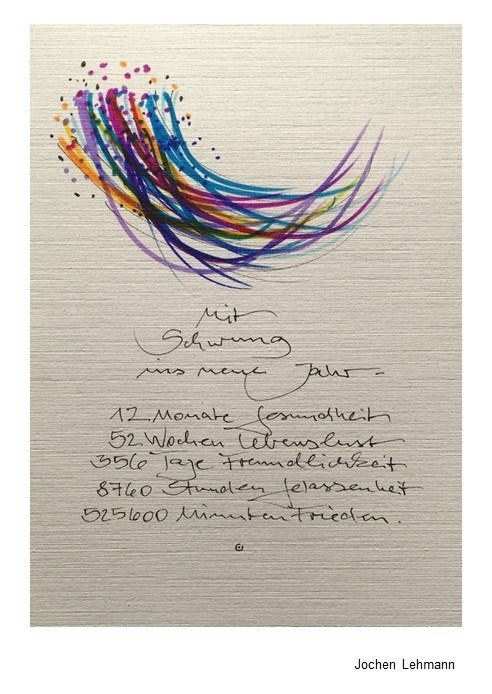 Mit
Schwung
ins neue Jahr -
12 Monate Gesundheit
52 Wochen Lebenslust
356 Tage Freundlichkeit
8760 Stunden Gelassenheit
525600 Minuten Frieden.
Jochen Lehmann